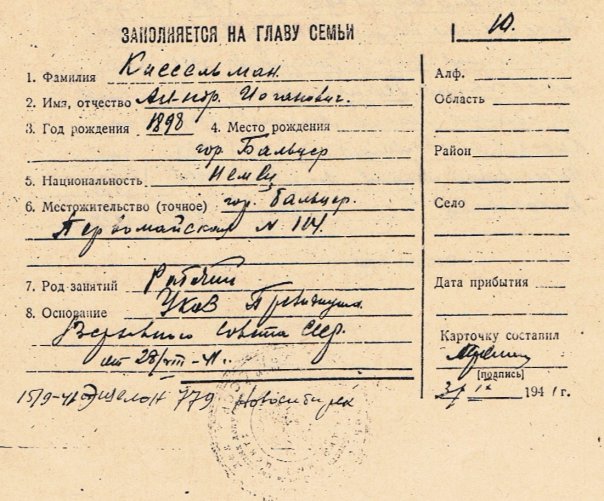 ЗАПОЛНЯЕТСЯ НА ГЛАВУ СЕМЬИ
10.
1. Фамилия Киссельман.
2. Имя, отчество Ал-ндр. Иоганович.
3. Год рождения 1898 4. Место рождения
гор Бальцер
5. Национальность Немец
6. Местожительство (точное) гор. Бальцер.
Первомайская N 104.
7. Род занятий Рабочий
8. Основание Указ Президиума
Верховного Совета СССР.
от 28/VIII-41г.
15/9-41 Эшелон 779 Новосибирск
Алф.
Область
Район
Село
Дата прибытия
Карточку составил
[подпись]
3/IX 1941 г.